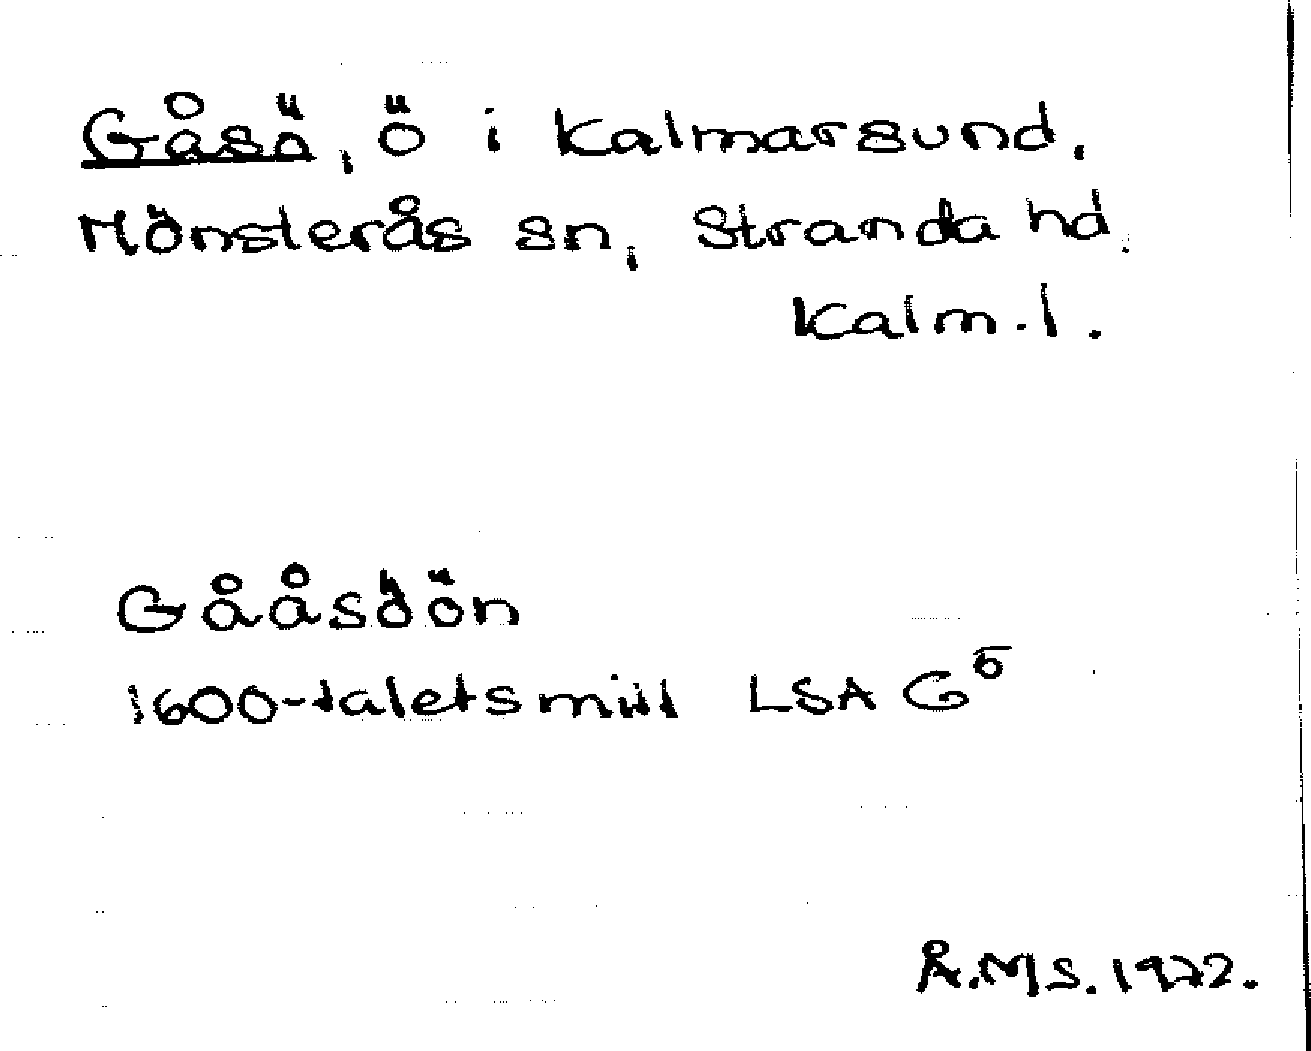 Gåsö, ö i Kalmarsund,
Mönsterås sn, Stranda hd.
Kalm. l.
Gååsöön
1600-talets mitt LSA G⁵
Å.M.S. 1972.